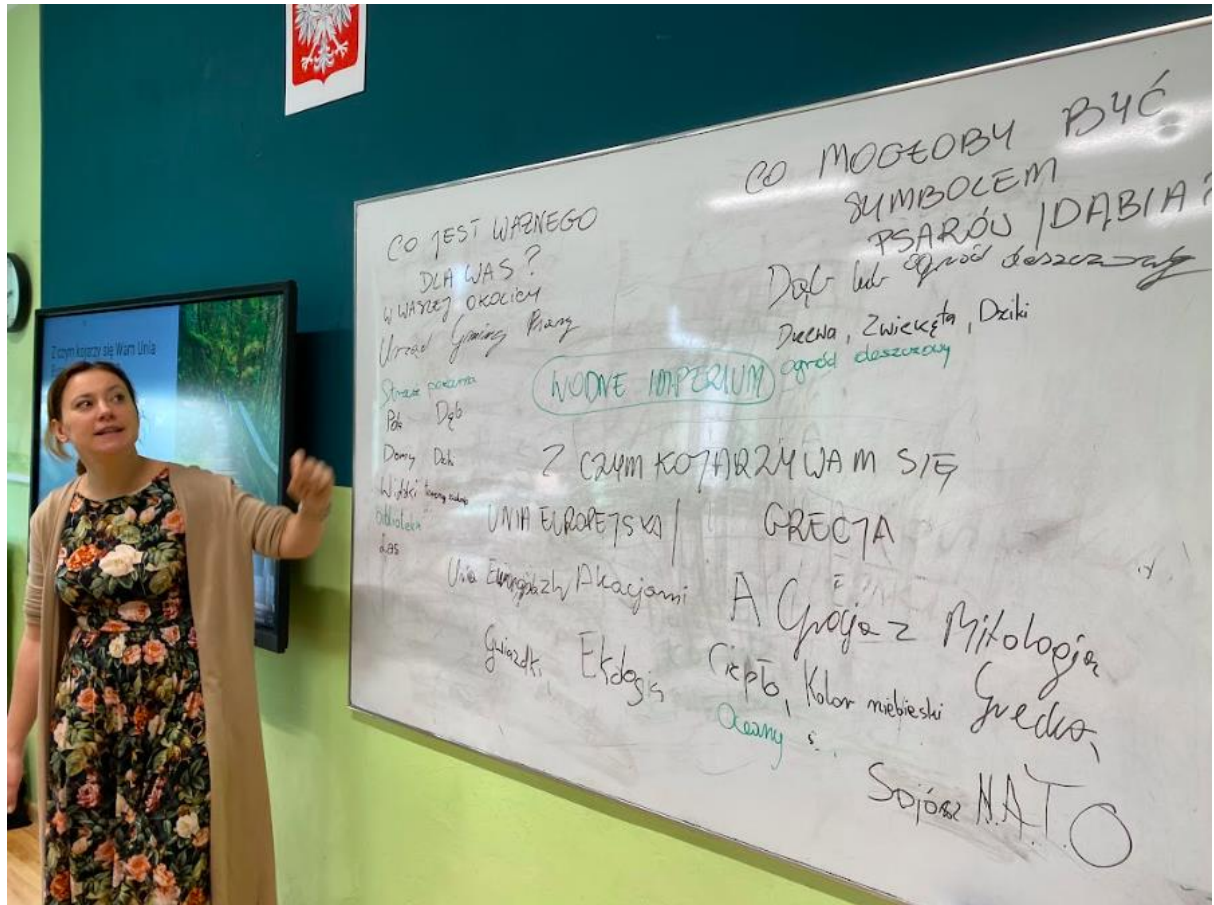 Z czym kojarzy się Wam Unia
CO JEST WAŻNEGO
DLA WAS?
W WASZEJ OKOLICY
Urząd Gminy Psary
Straż pożarna
Pola Dąb
Domy
biblioteka
Las
CO MOGŁOBY BYĆ
SYMBOLEM
PSARÓW / DĄBIA?
Dąb lub ogród deszczowy
Drzewa, Zwiekęta, Dziki
ogród deszczowy
WODNE IMPERIUM
Z CZYM KOJARZY WAM SIĘ
UNIA EUROPEJSKA / GRECJA
Unia Akacjami
A Grecja z Mitologią
Grecką,
Gwiazdki, Ekologia
Ciepło, Kolor niebieski
Oceany
Sojósz N.A.T.O